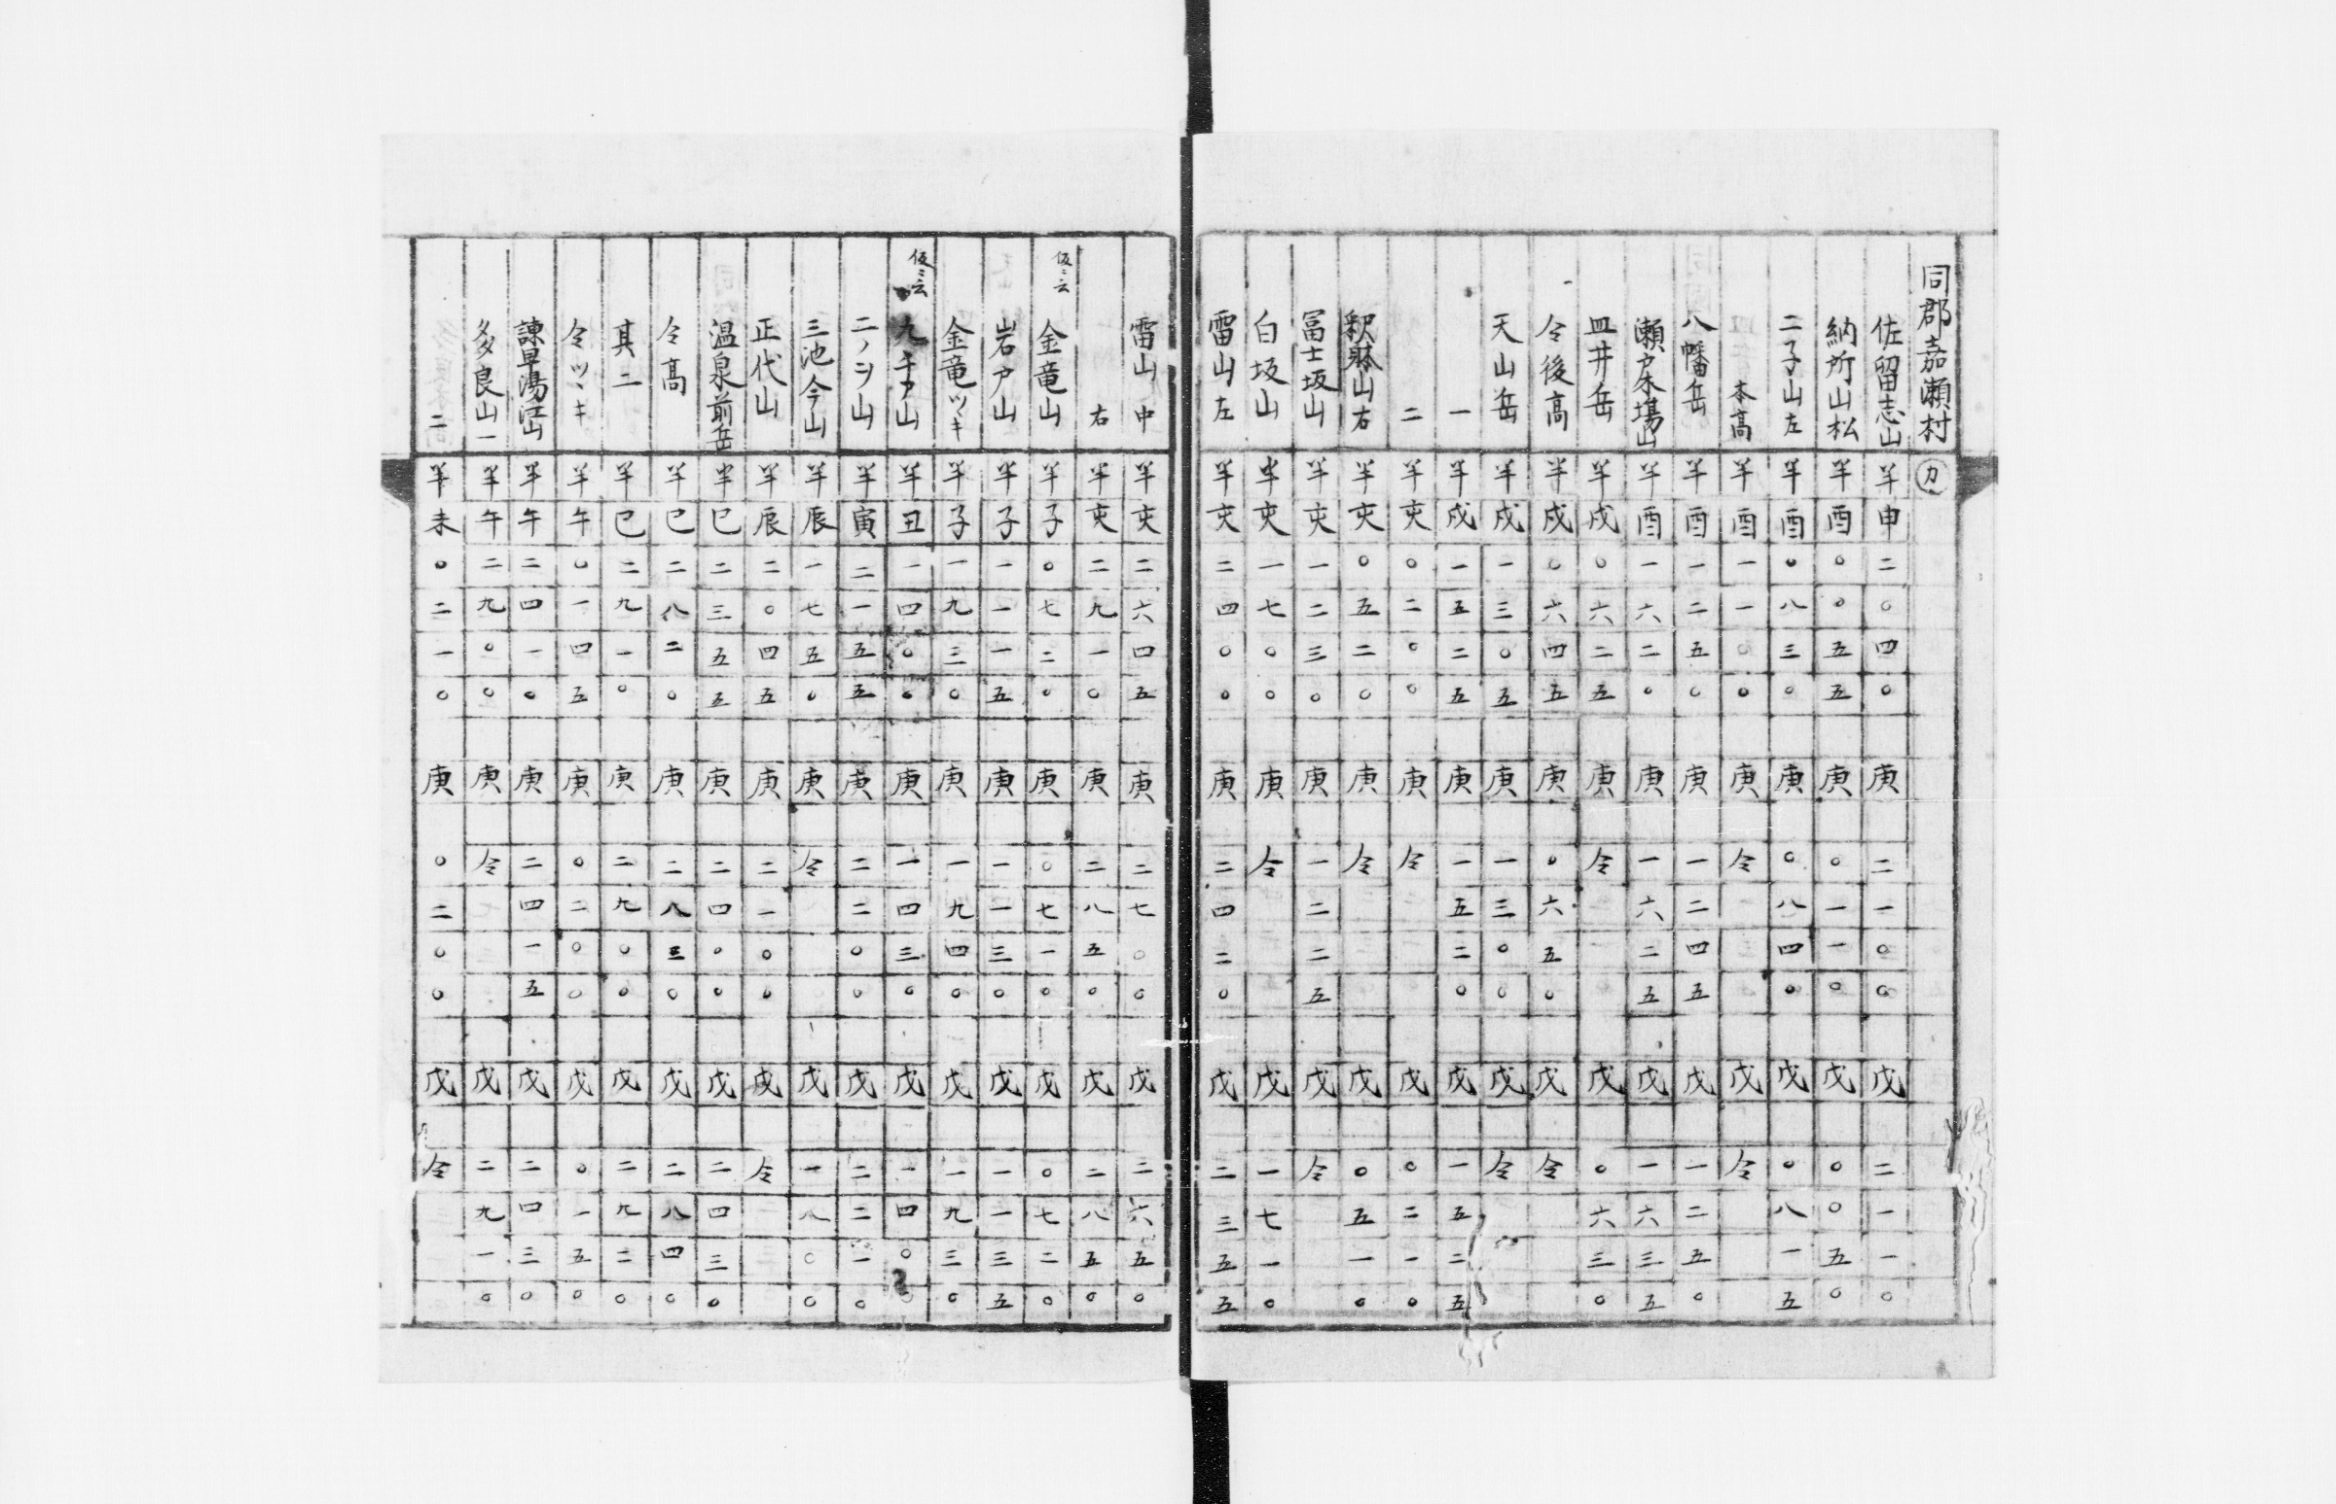 同郡嘉瀬村 カ
佐留志山 半申二〇四〇 庚 二一〇〇 戊 二一一〇
納所山松 半酉〇〇五五 庚 〇一一〇 戊 〇〇五〇
二子山左 半酉〇八三〇 庚 〇八四〇 戊 〇八一五
本高 半酉一一〇〇 庚 仝 戊 仝
八幡岳 半酉一二五〇 庚 一二四五 戊 一二五〇
瀬戸木場山 半酉一六二〇 庚 一六二五 戊 一六三五
皿井岳 半戌〇六二五 庚 仝 戊 〇六三〇
仝後高 半戌〇六四五 庚 〇六五〇 戊 仝
天山岳 半戌一三〇五 庚 一三〇〇 戊 仝
一 半戌一五二五 庚 一五二〇 戊 一五二五
二 半亥〇二〇〇 庚 仝 戊 〇二一〇
釈迦山右 半亥〇五二〇 庚 仝 戊 〇五一〇
冨士坂山 半亥一二三〇 庚 一二二五 戊 仝
白坂山 半亥一七〇〇 庚 仝 戊 一七一〇
雷山左 半亥二四〇〇 庚 二四二〇 戊 二三五五
雷山中 半亥二六四五 庚 二七〇〇 戊 二六五〇
右 半亥二九一〇 庚 二八五〇 戊 二八五〇
仮ニ云 金竜山 半子〇七二〇 庚 〇七一〇 戊 〇七二〇
岩戸山 半子一一一五 庚 一一三〇 戊 一一三五
金竜ツヽキ 半子一九三〇 庚 一九四〇 戊 一九三〇
仮ニ云 九千戸山 半丑一四〇〇 庚 一四三〇 戊 一四〇〇
二ノヲ山 半寅二一五五 庚 二二〇〇 戊 二二一〇
三池今山 半辰一七五〇 庚 仝 戊 一八〇〇
正代山 半辰二〇四五 庚 二一〇〇 戊 仝
温泉前岳 半巳二三五五 庚 二四〇〇 戊 二四三〇
仝高 半巳二八二〇 庚 二八三〇 戊 二八四〇
其二 半巳二九一〇 庚 二九〇〇 戊 二九二〇
仝ツヽキ 半午〇一四五 庚 〇二〇〇 戊 〇一五〇
諌早湯江山 半午二四一〇 庚 二四一五 戊 二四三〇
多良山一 半午二九〇〇 庚 仝 戊 二九一〇
二 半未〇二一〇 庚 〇二〇〇 戊 仝